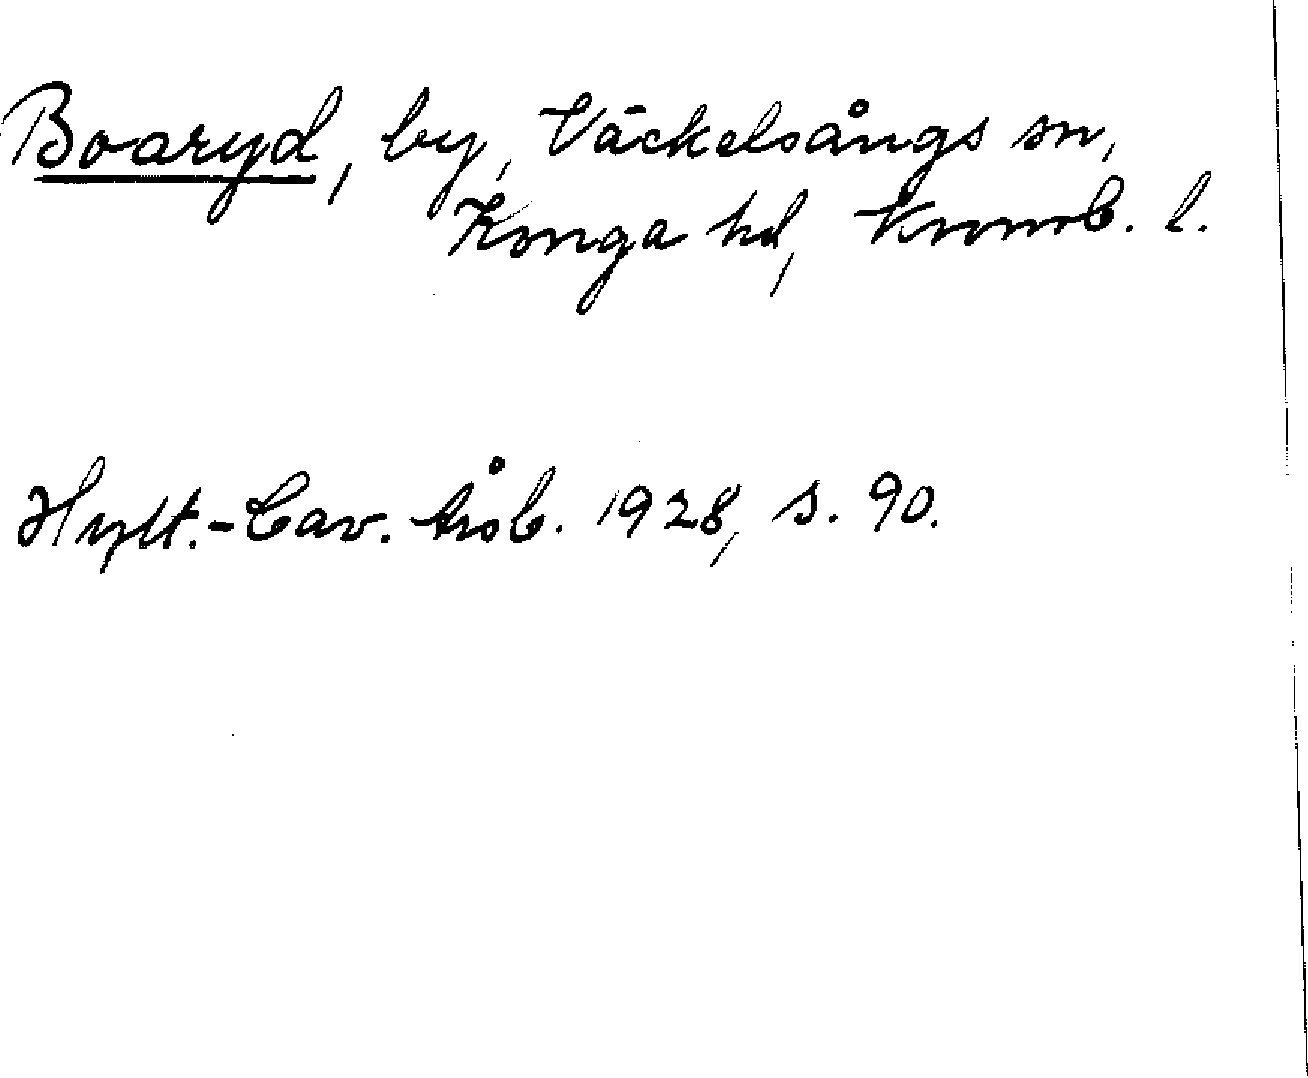 Boaryd, by, Väckelsångs sn,
Konga hd, Kronob. l.
Hylt.-Cav. årsb. 1928, s. 90.